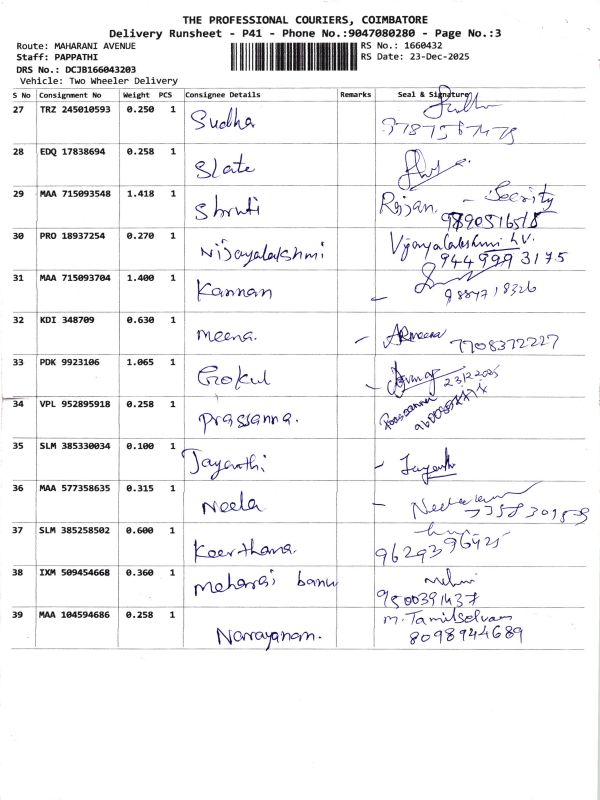 THE PROFESSIONAL COURIERS, COIMBATORE
Delivery Runsheet - P41 - Phone No.:9047080280 - Page No.:3
Route: MAHARANI AVENUE RS No.: 1660432
Staff: PAPPATHI RS Date: 23-Dec-2025
DRS No.: DCJB166043203
Vehicle: Two Wheeler Delivery
S No Consignment No Weight PCS Consignee Details Remarks Seal & Signature
27 TRZ 245010593 0.250 1 Sudha
28 EDQ 17838694 0.258 1 Slate
29 MAA 715093548 1.418 1 Shruti Rajan.
30 PRO 18937254 0.270 1 Vijayalakshmi Vijayalakshmi L.V.
944 999 3175
31 MAA 715093704 1.400 1 Kannan
9884718326
32 KDI 348709 0.630 1 meena. - ARmeena
7708372227
33 PDK 9923106 1.065 1 Gokul - 23/12/2025
34 VPL 952895918 0.258 1 Prassanna.
35 SLM 385330034 0.100 1 Jayanthi - Jayanthi
36 MAA 577358635 0.315 1 Neela -
37 SLM 385258502 0.600 1 Keerthana.
9629396925
38 IXM 509454668 0.360 1 Meharaj banu
9500391437
39 MAA 104594686 0.258 1 Narayanan. M. Tamilselvam
8098944689